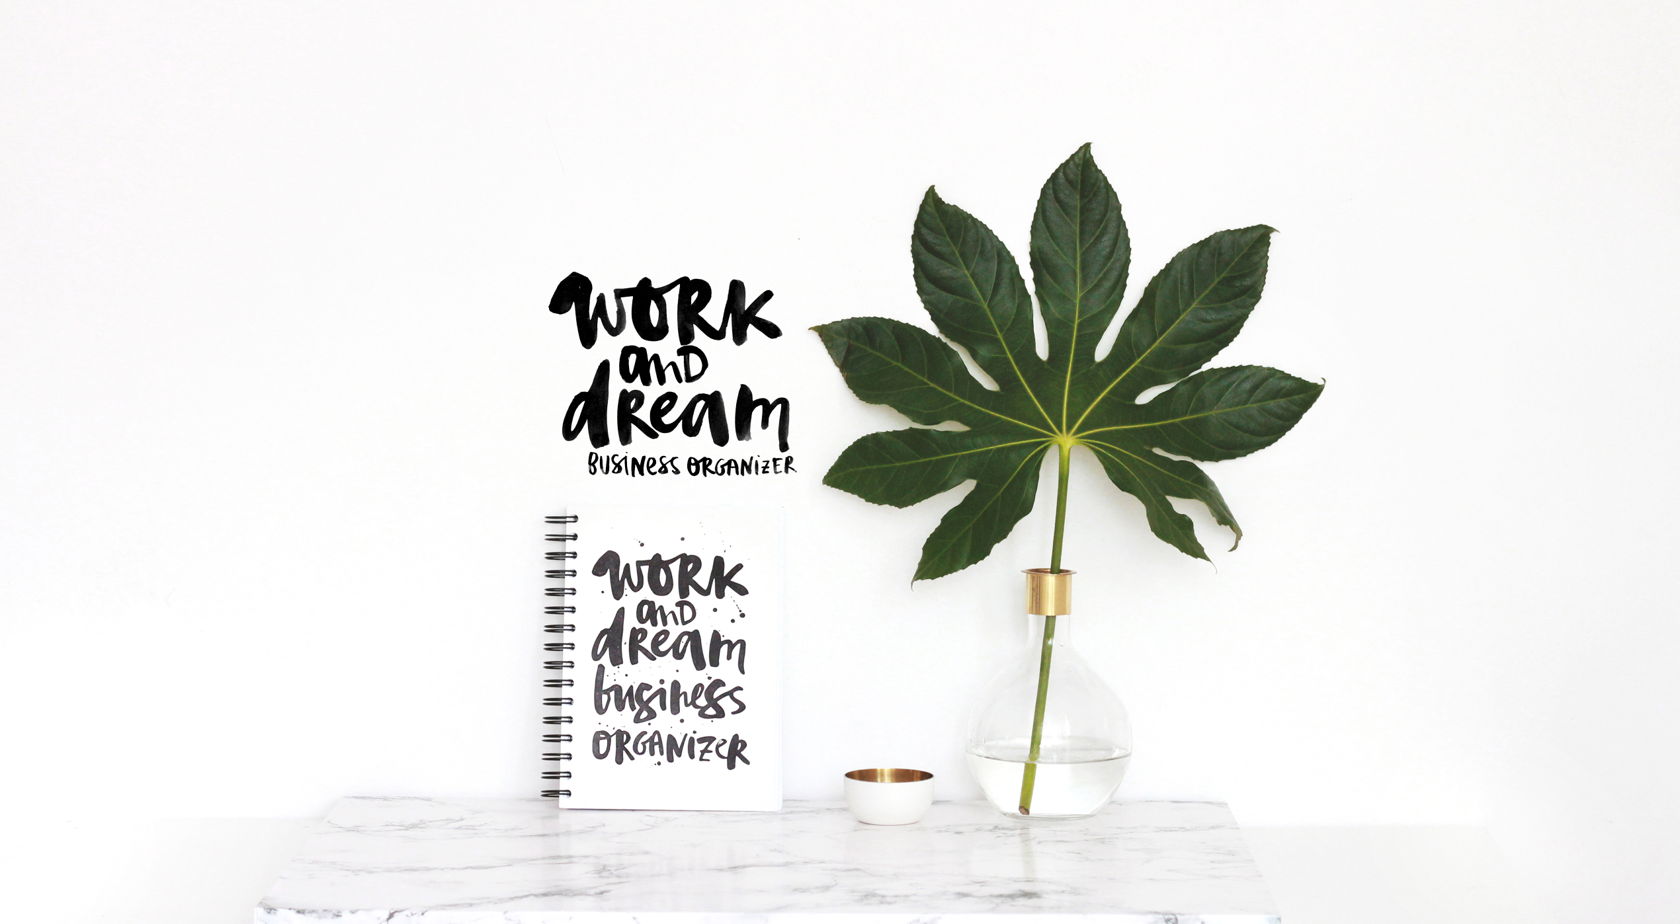 WORK
and
dReam
BUSINESS ORGANIZER
WORK
and
dReam
business
ORGANIZER